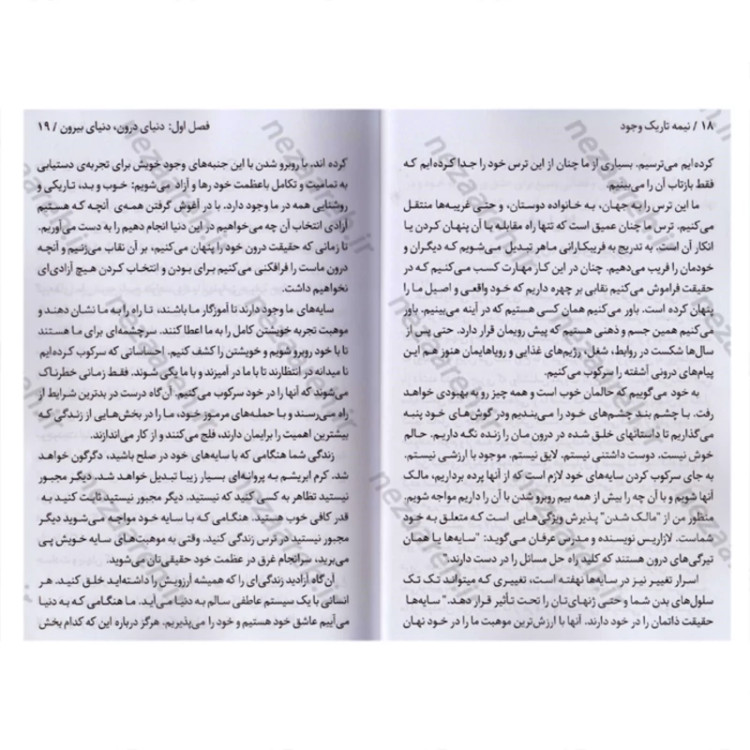 ۱۸ / نیمه تاریک وجود
کرده‌ایم می‌ترسیم. بسیاری از ما چنان از این ترس خود را جدا کرده‌ایم که
فقط بازتاب آن را می‌بینیم.
ما این ترس را به جهان، به خانواده دوستان، و حتی غریبه‌ها منتقل
می‌کنیم. ترس ما چنان عمیق است که تنها راه مقابله با آن پنهان کردن یا
انکار آن است. به تدریج به فریبکارانی ماهر تبدیل می‌شویم که دیگران و
خودمان را فریب می‌دهیم. چنان در این کار مهارت کسب می‌کنیم که در
حقیقت فراموش می‌کنیم نقابی بر چهره داریم که خود واقعی و اصیل ما را
پنهان کرده است. باور می‌کنیم همان کسی هستیم که در آینه می‌بینیم. باور
می‌کنیم همین جسم و ذهنی هستیم که پیش رویمان قرار دارد. حتی پس از
سال‌ها شکست در روابط، شغل، رژیم‌های غذایی و رویاهایمان هنوز هم این
پیام‌های درونی آشفته را سرکوب می‌کنیم.
به خود می‌گوییم که حالمان خوب است و همه چیز رو به بهبودی خواهد
رفت. با چشم بند چشم‌های خود را می‌بندیم ودر گوش‌های خود پنبه
می‌گذاریم تا داستانهای خلق شده در درون مان را زنده نگه داریم. حالم
خوش نیست. دوست داشتنی نیستم. لایق نیستم. موجود با ارزشی نیستم.
به جای سرکوب کردن سایه‌های خود لازم است که از آنها پرده برداریم، مالک
آنها شویم و با آن چه را بیش از همه بیم روبرو شدن با آن را داریم مواجه شویم.
منظور من از "مالک شدن" پذیرش ویژگی‌هایی است که متعلق به خود
شماست. لازاریس نویسنده و مدرس عرفان می‌گوید: "سایه‌ها یا همان
تیرگی‌های درون هستند که کلید راه حل مسائل را در دست دارند.
اسرار تغییر نیز در سایه‌ها نهفته است، تغییری که میتواند تک تک
سلول‌های بدن شما و حتی ژنهای‌تان را تحت تأثیر قرار دهد." سایه‌ها
حقیقت ذاتمان را در خود دارند. آنها با ارزش‌ترین موهبت ما را در خود نهان
فصل اول: دنیای درون، دنیای بیرون / ۱۹
کرده اند. با روبرو شدن با این جنبه‌های وجود خویش برای تجربه‌ی دستیابی
به تمامیت و تکامل باعظمت خود رها و آزاد می‌شویم: خوب و بد، تاریکی و
روشنایی همه در ما وجود دارد. با در آغوش گرفتن همه‌ی آنچه که هستیم
آزادی انتخاب آن چه می‌خواهیم در این دنیا انجام دهیم را به دست می‌آوریم.
تا زمانی که حقیقت درون خود را پنهان می‌کنیم، بر آن نقاب می‌زنیم و آنچه
درون ماست را فرافکنی می‌کنیم برای بودن و انتخاب کردن هیچ آزادی‌ای
نخواهیم داشت.
سایه‌های ما وجود دارند تا آموزگار ما باشند، تا راه را به ما نشان دهند و
موهبت تجربه خویشتن کامل را به ما اعطا کنند. سرچشمه‌ای برای ما هستند
تا با خود روبرو شویم و خویشتن را کشف کنیم. احساساتی که سرکوب کرده‌ایم
نا میدانه در انتظارند تا با ما در آمیزند و با ما یکی شوند. فقط زمانی خطرناک
می‌شوند که آنها را در خود سرکوب می‌کنیم. آن گاه درست در بدترین شرایط از
راه می‌رسند و با حمله‌های مرموز خود، ما را در بخش‌هایی از زندگی که
بیشترین اهمیت را برایمان دارند، فلج می‌کنند و از کار می‌اندازند.
زندگی شما هنگامی که با سایه‌های خود در صلح باشید، دگرگون خواهد
شد. کرم ابریشم به پروانه‌ای بسیار زیبا تبدیل خواهد شد. دیگر مجبور
نیستید تظاهر به کسی کنید که نیستید. دیگر مجبور نیستید ثابت کنید به
قدر کافی خوب هستید. هنگامی که با سایه خود مواجه می‌شوید دیگر
مجبور نیستید در ترس زندگی کنید. وقتی به موهبت‌های سایه خویش پی
می‌برید، سرانجام غرق در عظمت خود حقیقی‌تان می‌شوید.
آن گاه آزادید زندگی‌ای را که همیشه آرزویش را داشته‌اید خلق کنید. هر
انسانی با یک سیستم عاطفی سالم به دنیا می‌آید. ما هنگامی که به دنیا
می‌آییم عاشق خود هستیم و خود را می‌پذیریم. هرگز درباره این که کدام بخش
nezaareh.ir